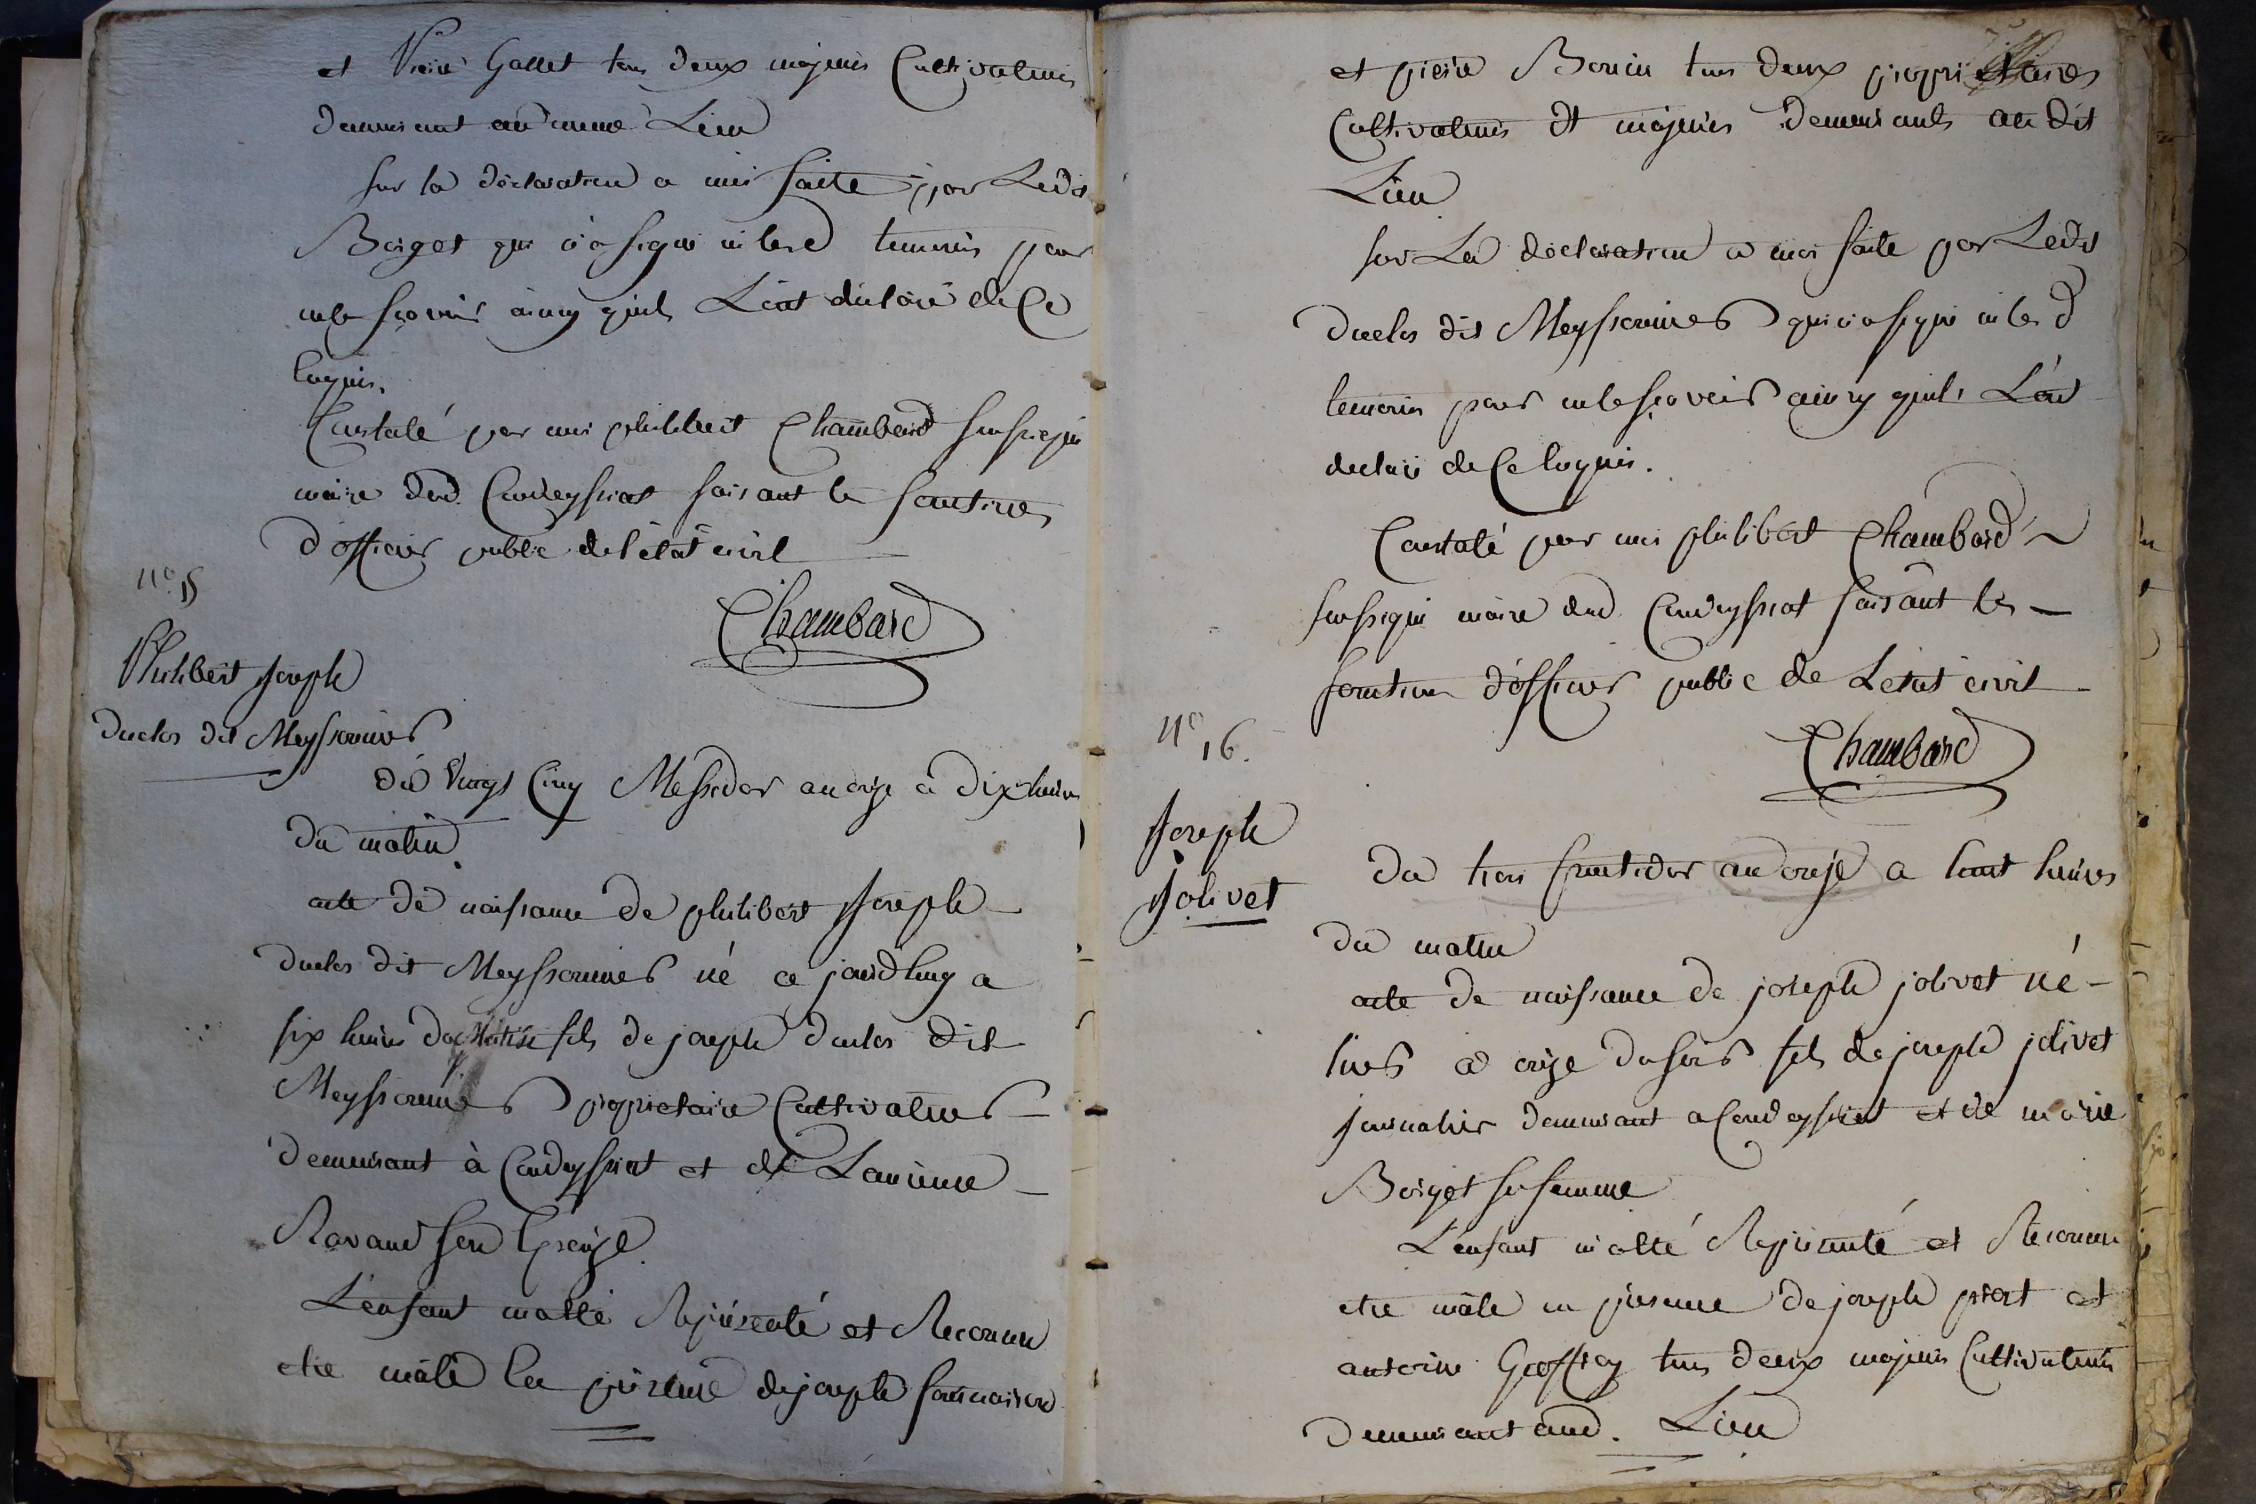 et Pierre Gallet tous deux majeurs Cultivateurs
demeurant au meme Lieu
sur la déclaration a moi faite par Ledit
Borget qui n'a signé ni lesd temoins pour
ne le sçavoir ainsy quils L'ont déclaré de Ce
Enquis.
Constaté par moi philibert Chambard soussigné
maire dud. Condeyssiat faisant les fonctions
d'officier public de l'état civil
Chambard
N° 15
Philibert Joseph
Duclos dit Meyssonnier
Du Vingt Cinq Messidor an onze à dix heures
du matin
acte de naissance de philibert Joseph
duclos dit Meyssonnier né ce jourdhuy a
six heures du Matin fils de joseph duclos dit
Meyssonnier propriétaire Cultivateur
demeurant à Condeyssiat et de Laurence
Ravaud son Epouze
L'enfant m'a été Représenté et Reconnu
etre mâle en présence de joseph
et pierre tous deux propriétaires
Cultivateurs et majeurs demeurants au dit
Lieu
sur La déclaration a moi faite par Ledit
duclos dit Meyssonnier qui n'a signé ni les d
temoins pour ne le sçavoir ainsy quils L'ont
declaré de Ce Enquis.
Constaté par moi philibert Chambard
soussigné maire dud. Condeyssiat faisant les
fonctions d'officier public de L'etat civil
Chambard
N° 16.
Joseph
Jolivet
Du trois fructidor an onze a huit heures
du matin
acte de naissance de joseph jolivet né
hier a onze du soir fils de joseph jolivet
journalier demeurant a Condeyssiat et de marie
Borget sa femme
L'enfant m'a été Représenté et Reconnu
etre mâle en présence de joseph et
antoine Geoffray tous deux majeurs Cultivateurs
demeurant aud. Lieu